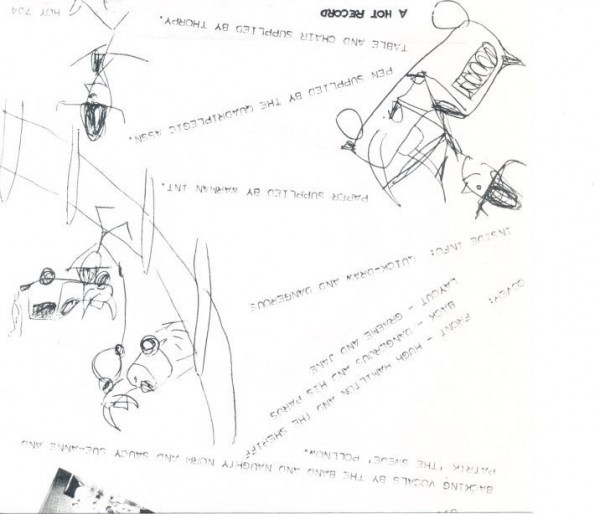 BACKING VOCALS BY THE BAND AND NAUGHTY NORA AND SAUCY SUE-ANNE AND
PATRIK 'THE SVEDE' POLLNOW.
COVER:
FRONT - HUGH HAMILTON AND THE SHERIFF
BACK - DANGEROUS AND HIS PARDS
LAYOUT - GRAEME AND JANE
INSIDE INFO: QUICK-DRAW AND DANGEROUS
PAPER SUPPLIED BY WARMAN INT.
PEN SUPPLIED BY THE QUADRIPLEGIC ASSN.
TABLE AND CHAIR SUPPLIED BY THORPY.
A HOT RECORD
HOT 704